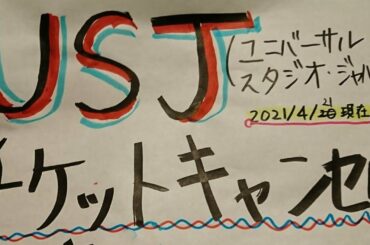 USJ
(ユニバーサル
スタジオ・ジャパ
2021/4/21日現在
チケットキャンセル